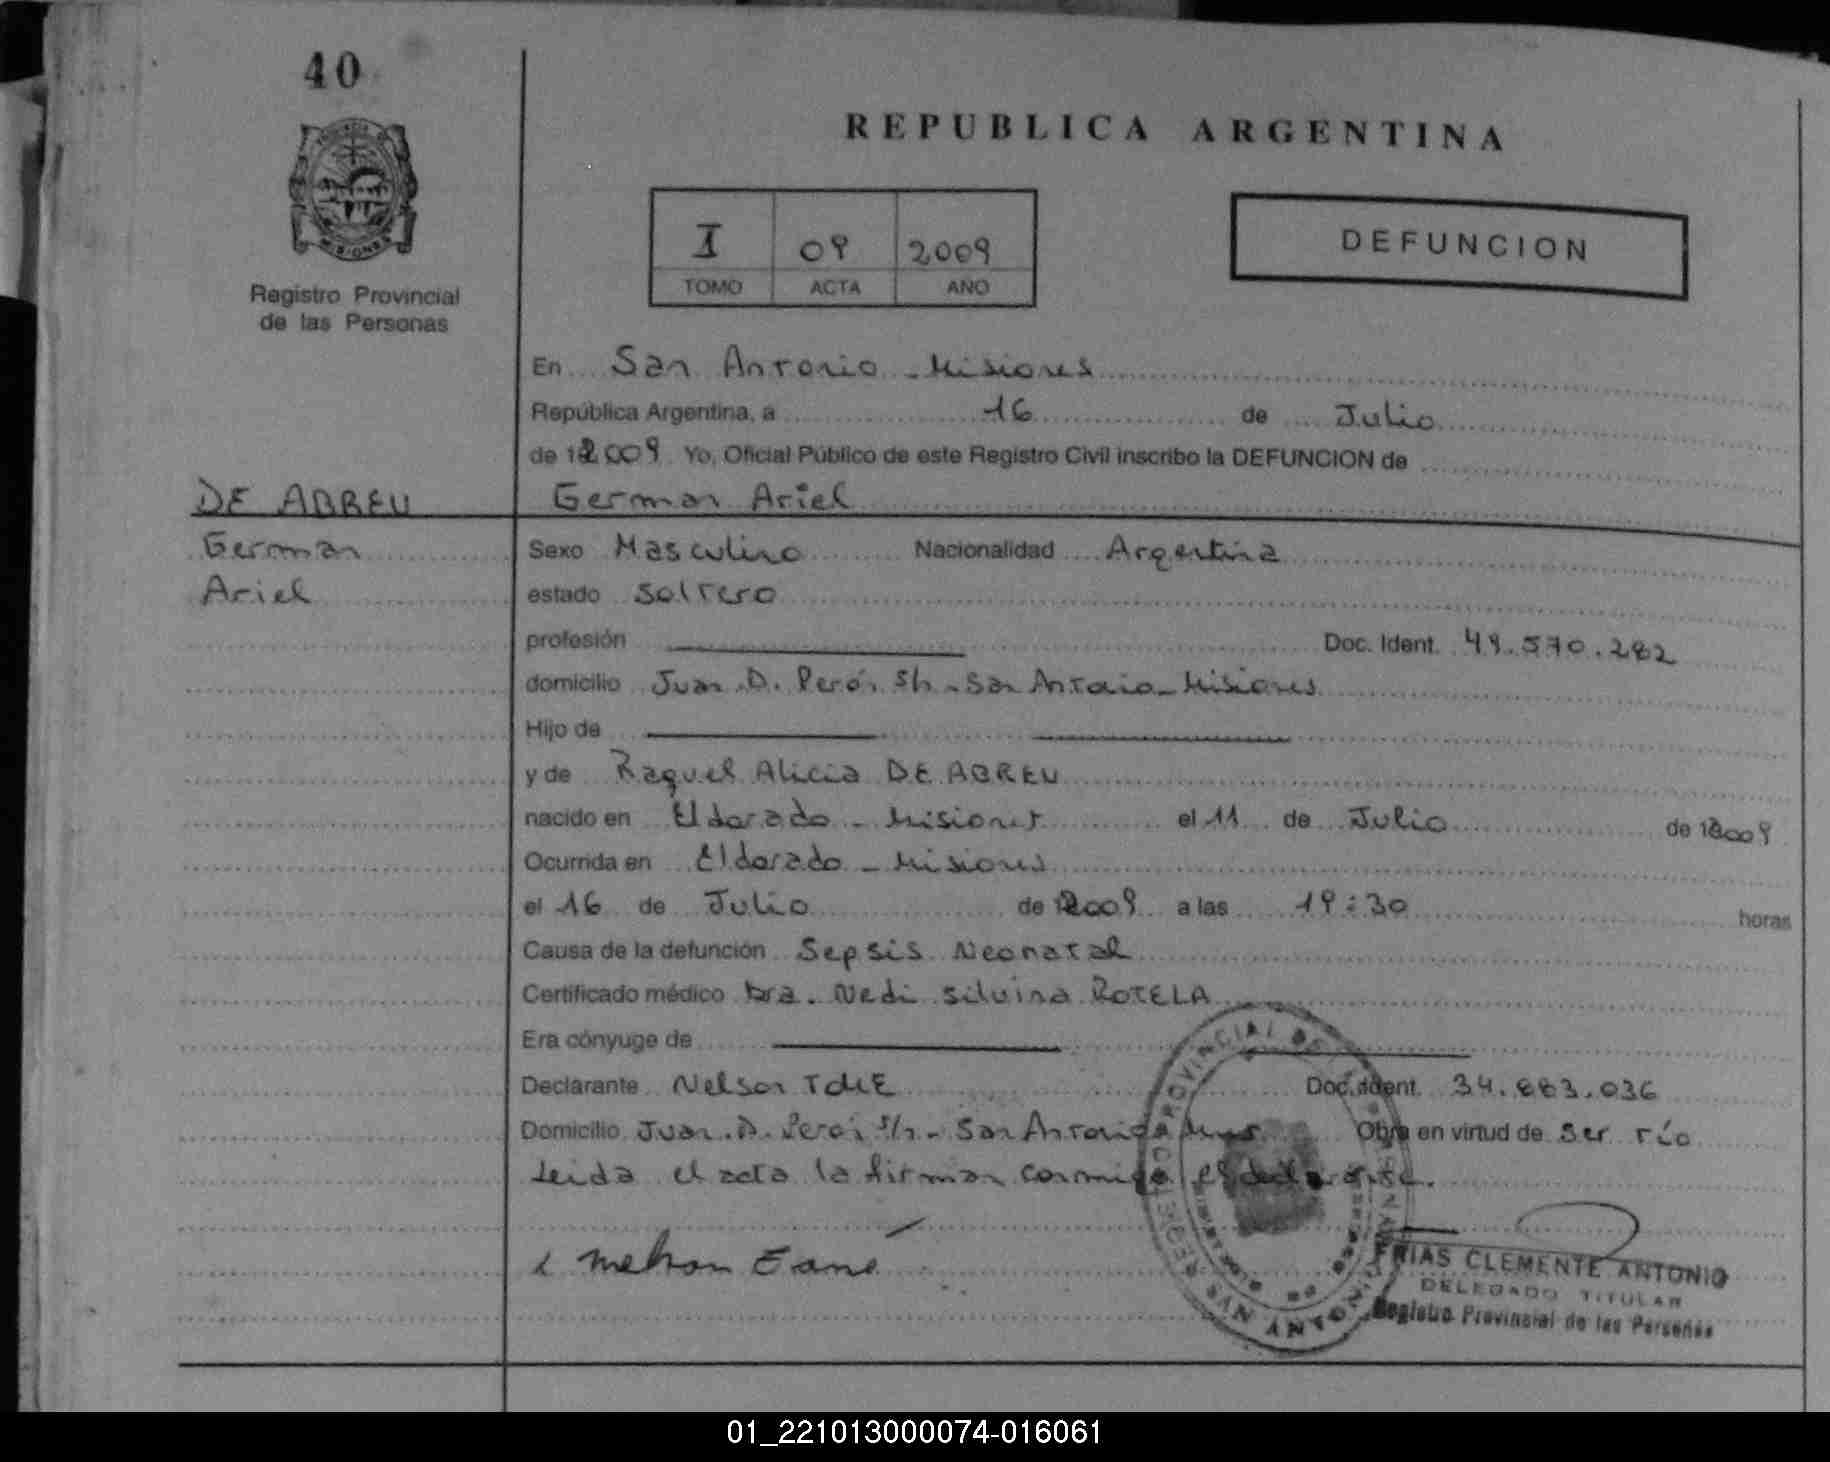 40
REPUBLICA ARGENTINA
MISIONES
Registro Provincial
de las Personas
I 09 2009
TOMO ACTA AÑO
DEFUNCION
En San Antonio - Misiones
República Argentina, a 16 de Julio
de 2009 Yo, Oficial Público de este Registro Civil inscribo la DEFUNCION de
DE ABREU German Ariel
German
Ariel
Sexo Masculino Nacionalidad Argentina
estado soltero
profesión Doc. Ident. 49.570.282
domicilio Juan D. Perón s/n - San Antonio - Misiones
Hijo de
y de Raquel Alicia DE ABREU
nacido en Eldorado - Misiones el 11 de Julio de 2009
Ocurrida en Eldorado - Misiones
el 16 de Julio de 2009 a las 19:30 horas
Causa de la defunción Sepsis Neonatal
Certificado médico Dra. Nedi Silvina ROTELA
Era cónyuge de
Declarante Nelson Doc. Ident. 34.883.036
Domicilio Juan. D. Perón s/n - San Antonio Obra en virtud de ser tío
Leida el acta la firman conmigo el declarante.
FRIAS CLEMENTE ANTONIO
DELEGADO TITULAR
Registro Provincial de las Personas
01_221013000074-016061